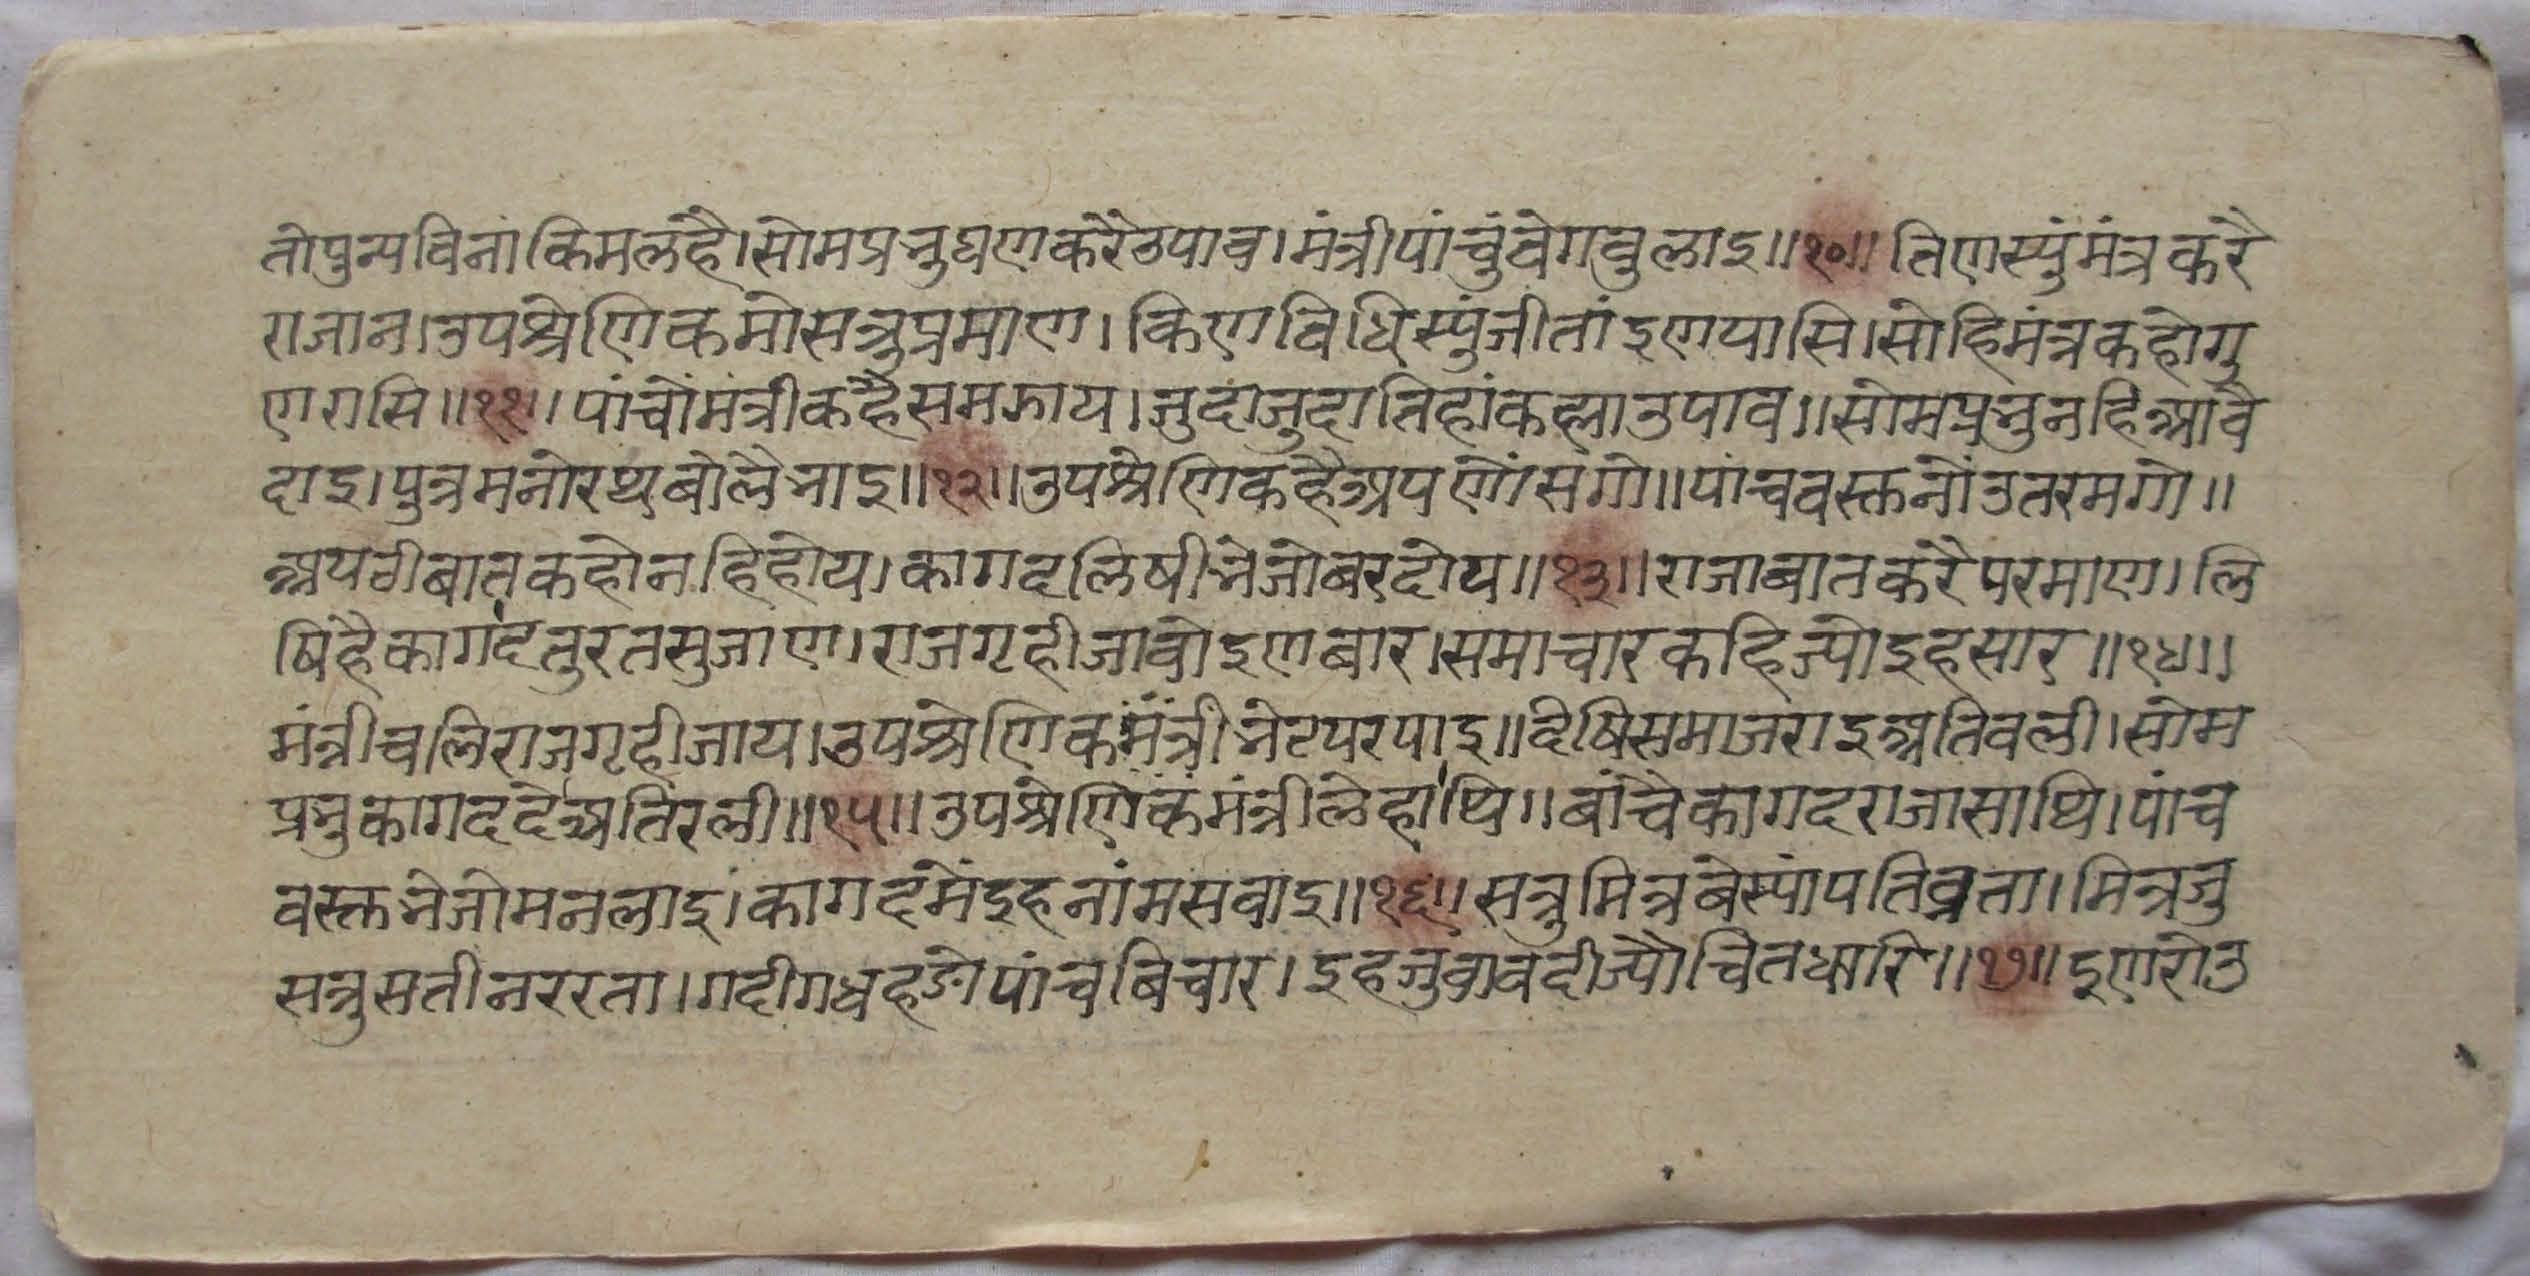 तोपुन्यविनांकिमलहै।सोमप्रभुघणकरैउपाव।मंत्रीपांचुंवेगबुलाइ॥१०॥तिणस्युंमंत्रकरै
राजान।उपश्रेणिकमोसत्रुप्रमाण।किणविधिस्युंजीतांइणपासि।सोहिमंत्रकहोगु
णरासि॥११॥पांचोंमंत्रीकहैसमझाय।जुदाजुदातिहांकह्याउपाव॥सोमप्रभुनहिआवै
दाइ।पुत्रमनोरथबोलैभाइ॥१२॥उपश्रेणिकहैआपणोंसगो॥पांचवस्तनोंउतरमगो॥
आपरीबातकहोनहिहोय।कागदलिषीभेजोबरदोय॥१३॥राजाबातकरैपरमाण।लि
षिहैकागदतुरतसुजाण।राजगृहीजावोइणबार।समाचारकहिज्योइहसार॥१४॥
मंत्रीचलिराजगृहीजाय।उपश्रेणिकमंत्रीभेटपरपाइ॥देषिसमाजराइअतिवली।सोम
प्रभुकागददेअतिरली॥१५॥उपश्रेणिकमंत्रीलेहाथि॥बांचैकागदराजासाथि।पांच
वस्तभेजोमनलाइ।कागदमेंइहनांमसवाइ॥१६॥सत्रुमित्रबेस्यांपतिव्रता।मित्रजु
सत्रुसतीनररता।गदीगधहडोपांचबिचार।इहजुवावदीज्यौचितधारि॥१७॥इणरोउ